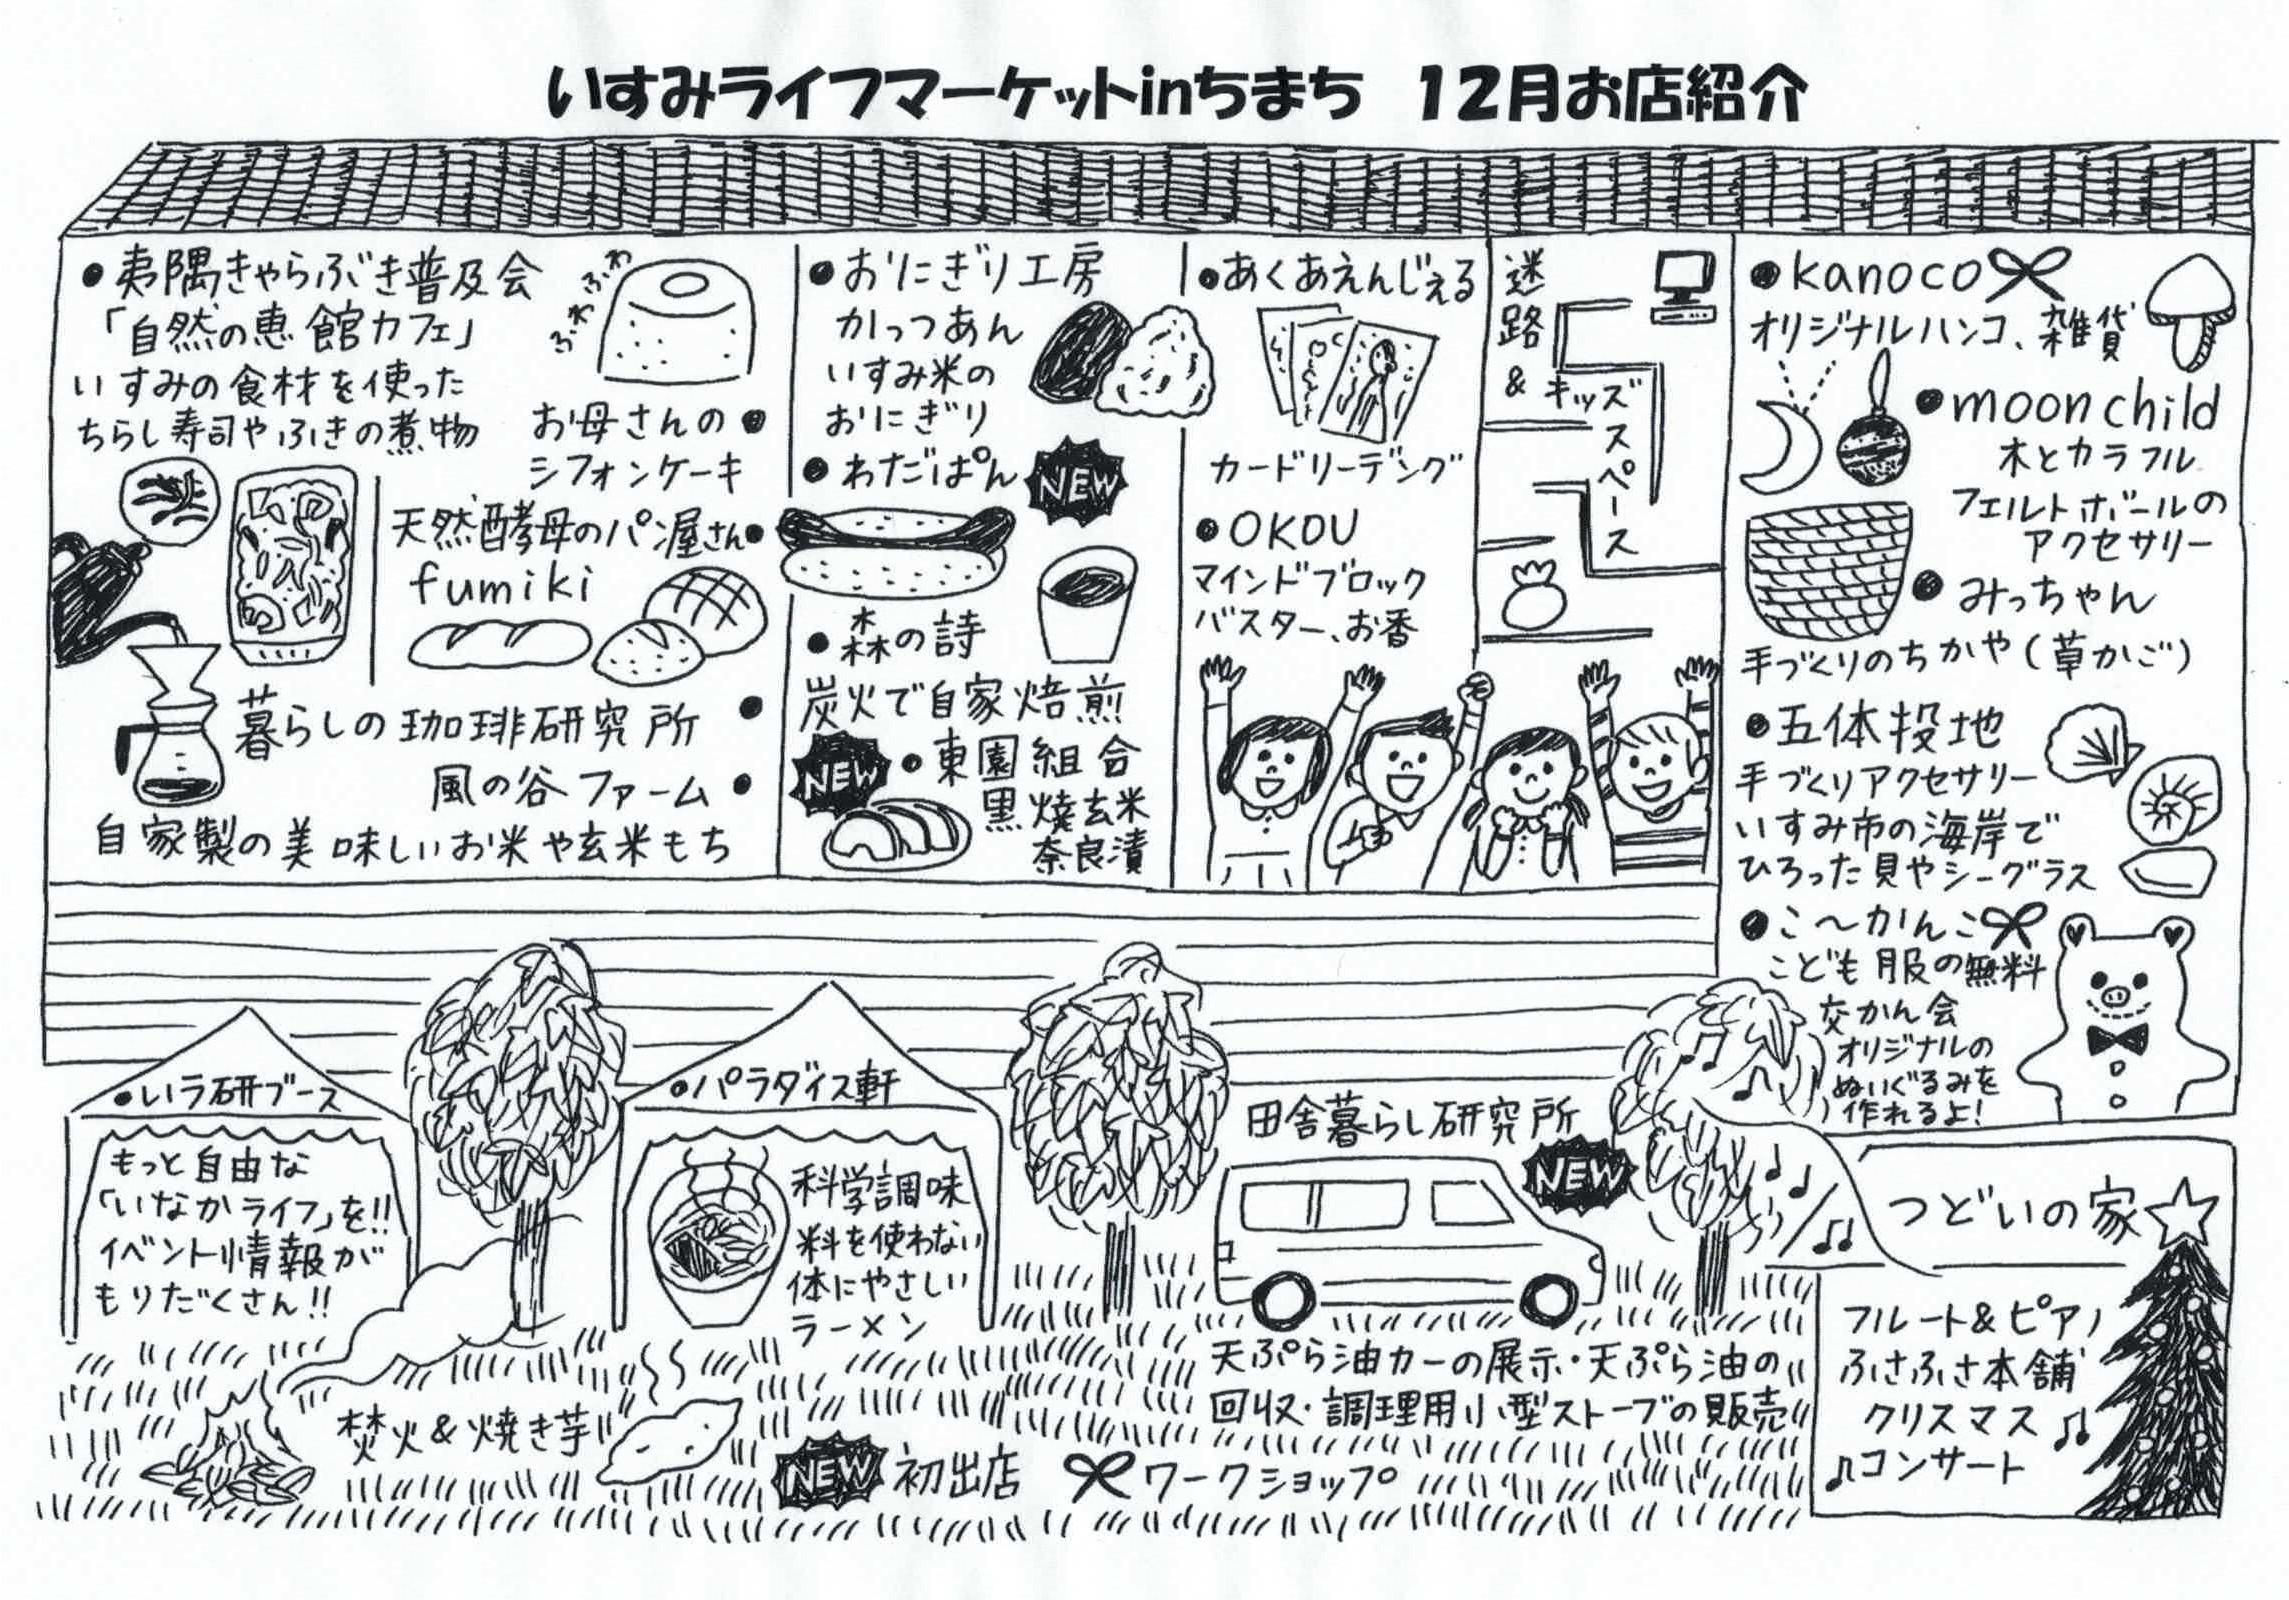 いすみライフマーケットinちまち　12月お店紹介
●夷隅きゃらぶき普及会
「自然の恵 館カフェ」
いすみの食材を使った
ちらし寿司やふきの煮物
ふわふわ
お母さんの●
シフォンケーキ
天然酵母のパン屋さん●
fumiki
暮らしの珈琲研究所●
風の谷ファーム●
自家製の美味しいお米や玄米もち
●おにぎり工房
かっつあん
いすみ米の
おにぎり
●わだぱん NEW
●森の詩
炭火で自家焙煎
NEW ●東園組合
黒焼玄米
奈良漬
●あくあえんじぇる
カードリーデング
●OKOU
マインドブロック
バスター、お香
迷路&キッズスペース
●kanoco
オリジナルハンコ、雑貨
●moon child
木とカラフル
フェルトボールの
アクセサリー
●みっちゃん
手づくりのちかや(草かご)
●五体投地
手づくりアクセサリー
いすみ市の海岸で
ひろった貝やシーグラス
●こ〜かんこ
こども服の無料
交かん会
オリジナルの
ぬいぐるみを
作れるよ!
●いラ研ブース
もっと自由な
「いなかライフ」を!!
イベント情報が
もりだくさん!!
●パラダイス軒
科学調味
料を使わない
体にやさしい
ラーメン
田舎暮らし研究所
NEW
天ぷら油カーの展示・天ぷら油の
回収・調理用小型ストーブの販売
つどいの家
フルート&ピアノ
ふさふさ本舗
クリスマス
♪コンサート
焚火&焼き芋
NEW 初出店 ワークショップ